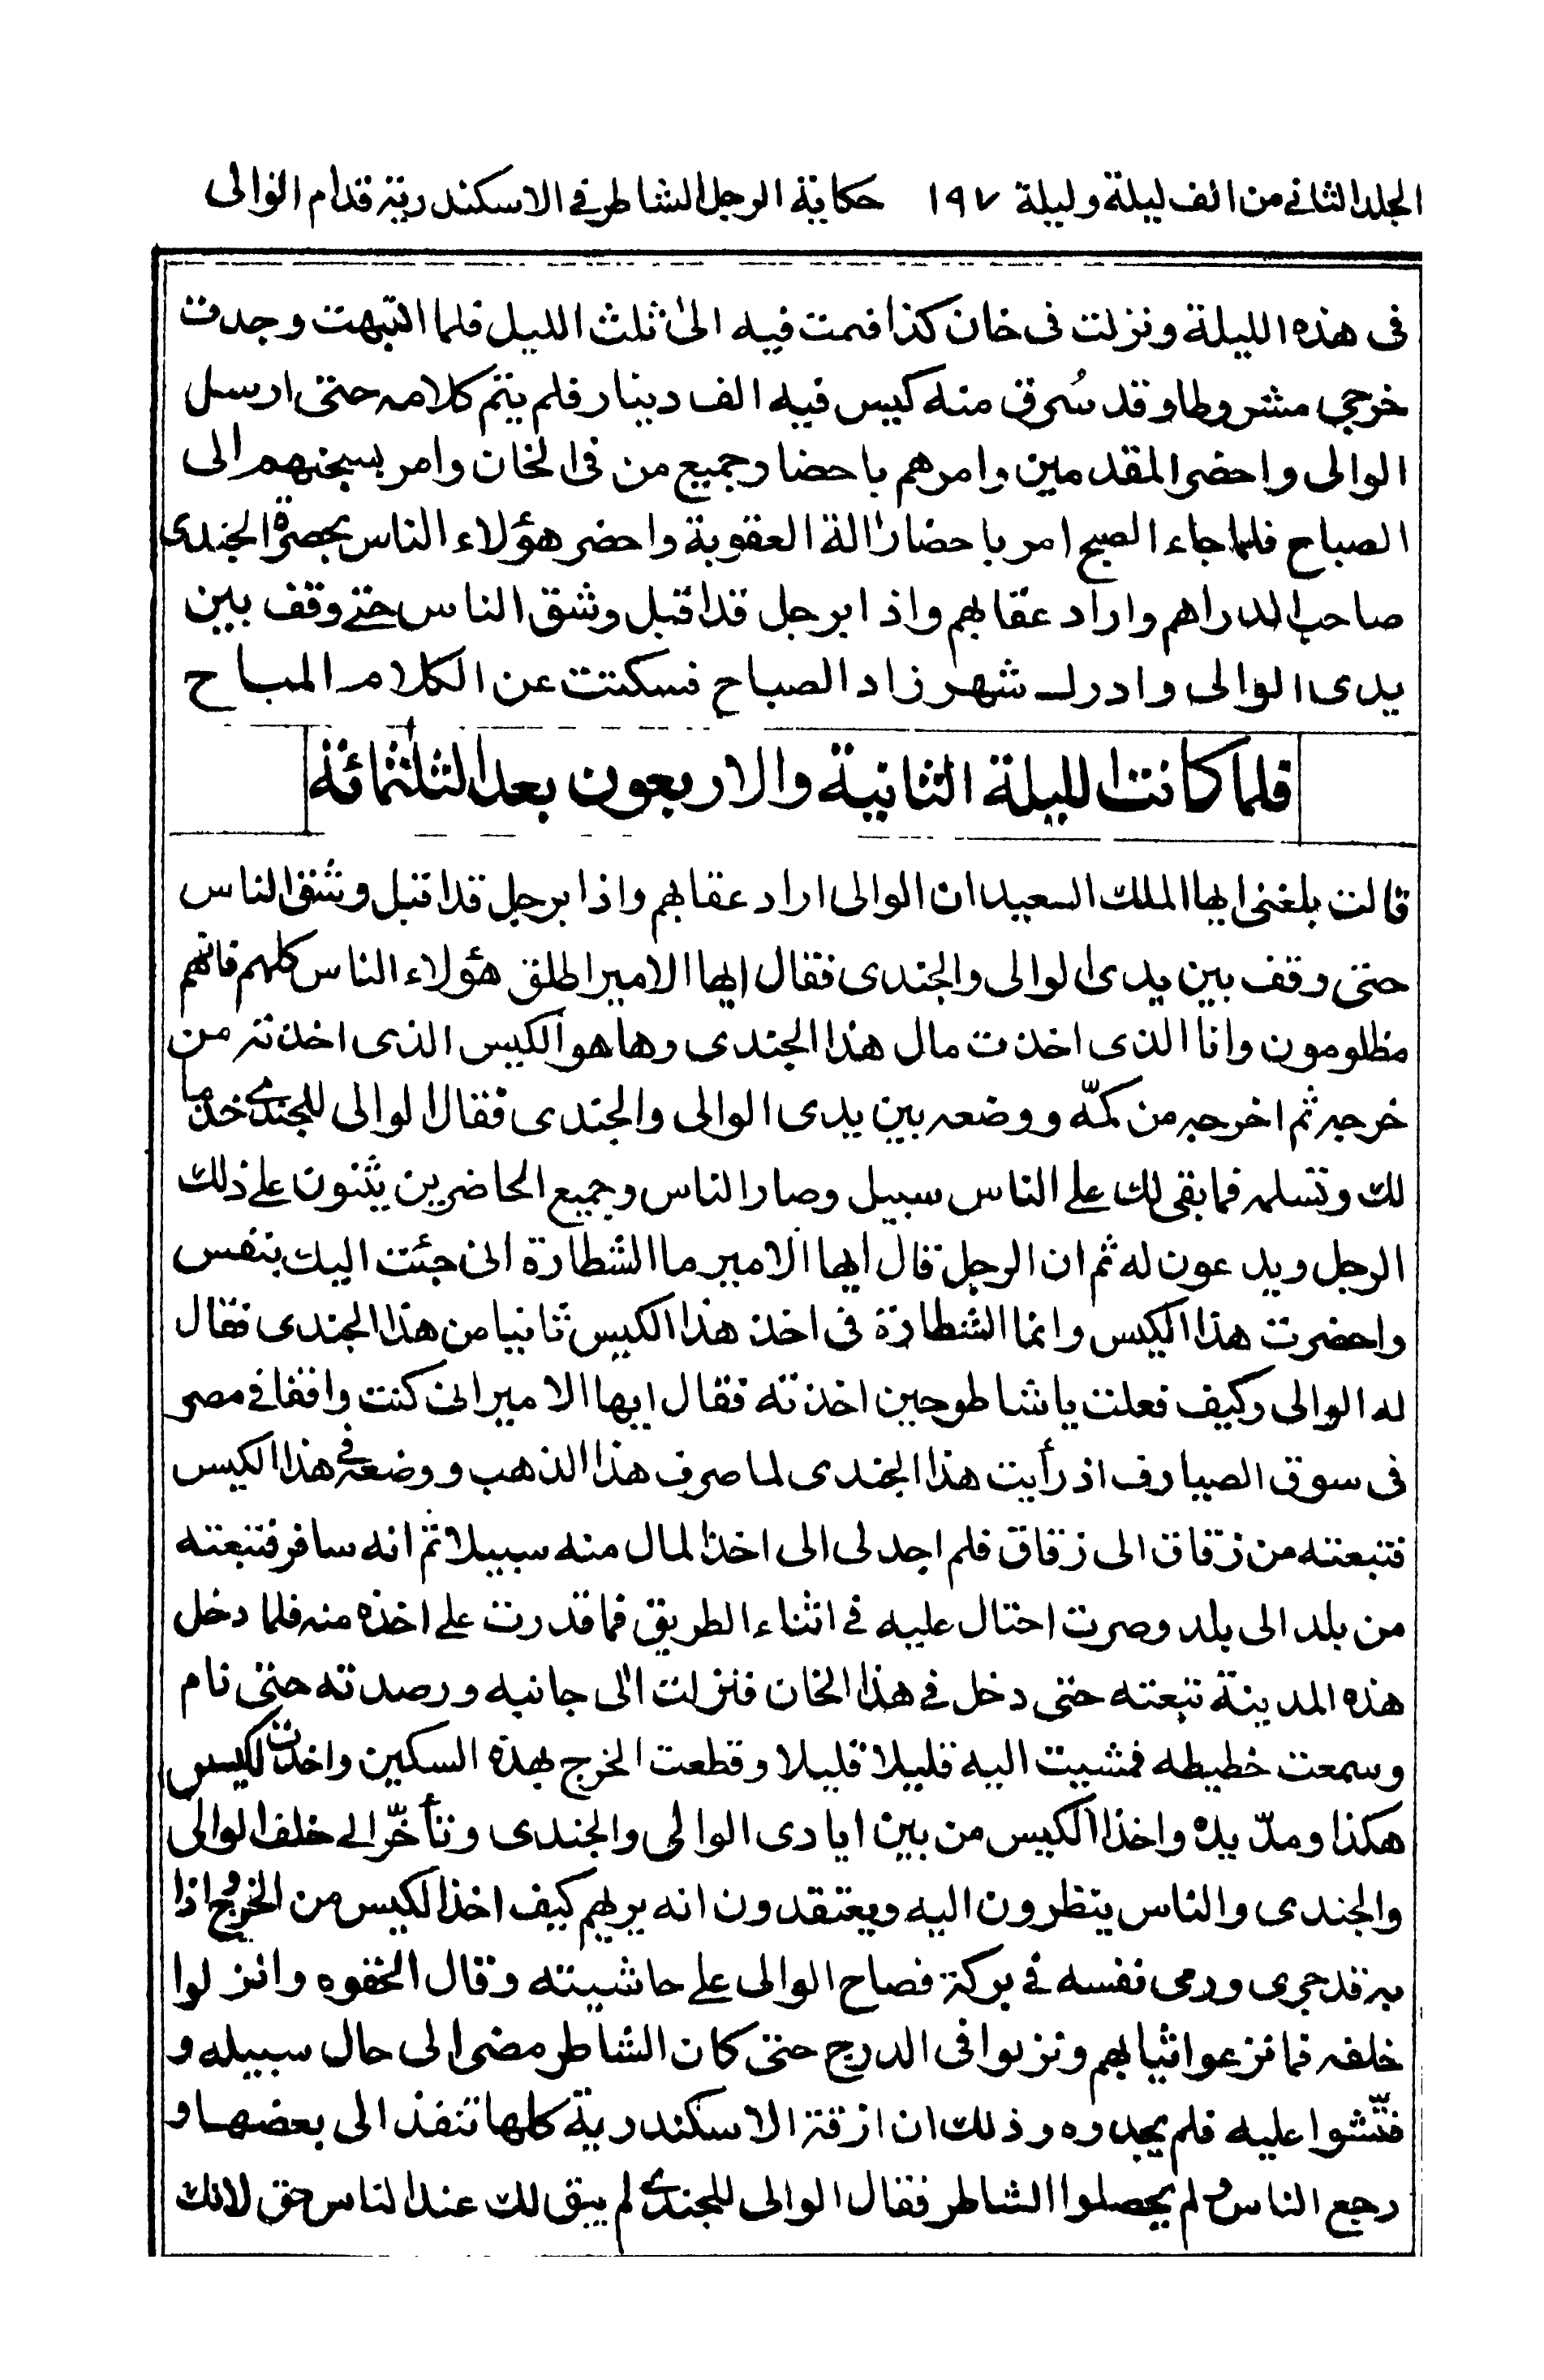 المجلد الثاني من الف ليلة وليلة ١٩٧ حكاية الرجل الشاطر في الاسكندرية قدام الوالى
فى هذه الليلة ونزلت فى خان كذا فنمت فيه الىٰ ثلث الليل فلما انتبهت وجدت
خرجى مشروطا وقد سُرق منه كيس فيه الف دينار فلم يتم كلامه حتى ارسل
الوالى واحضر المقدمين وامرهم باحضار جميع من فى الخان وامر بسجنهم الى
الصباح فلما جاء الصبح امر باحضار اٰلة العقوبة واحضر هؤلاء الناس بحضرة الجندى
صاحب الدراهم واراد عقابهم واذا برجل قد اقبل وشق الناس حتى وقف بين
يدى الوالى وادرك شهرزاد الصباح فسكتت عن الكلام المباح
فلما كانت الليلة الثانية والاربعون بعد الثلثمائة
قالت بلغنى ايها الملك السعيد ان الوالى اراد عقابهم واذا برجل قد اقبل وشق الناس
حتى وقف بين يدى الوالى والجندى فقال ايها الامير اطلق هؤلاء الناس كلهم فانهم
مظلومون وانا الذى اخذت مال هذا الجندى وها هو الكيس الذى اخذته من
خرجه ثم اخرجه من كمّه ووضعه بين يدى الوالى والجندى فقال الوالى للجندى خذ ما
لك وتسلمه فما بقى لك على الناس سبيل وصار الناس وجميع الحاضرين يثنون على ذلك
الرجل ويدعون له ثم ان الرجل قال ايها الامير ما الشطارة انى جئت اليك بنفسى
واحضرت هذا الكيس وانما الشطارة فى اخذ هذا الكيس ثانيا من هذا الجندى فقال
له الوالى وكيف فعلت يا شاطر حين اخذته فقال ايها الامير انى كنت واقفا في مصر
فى سوق الصيارف اذ رأيت هذا الجندى لما صرف هذا الذهب ووضعه في هذا الكيس
فتبعته من زقاق الى زقاق فلم اجد لى الى اخذ المال منه سبيلا ثم انه سافر فتبعته
من بلد الى بلد وصرت احتال عليه في اثناء الطريق فما قدرت على اخذه منه فلما دخل
هذه المدينة تبعته حتى دخل في هذا الخان فنزلت الى جانبه ورصدته حتى نام
وسمعت خطيطه فمشيت اليه قليلا قليلا وقطعت الخرج بهذه السكين واخذت الكيس
هكذا ومدّ يده واخذ الكيس من بين ايادى الوالى والجندى وتأخّر الى خلف الوالى
والجندى والناس ينظرون اليه ويعتقدون انه يريهم كيف اخذ الكيس من الخرج واذا
به قد جرى ورمى نفسه في بركة فصاح الوالى على حاشيته وقال الحقوه وانزلوا
خلفه فما نزعوا ثيابهم ونزلوا فى الدرج حتى كان الشاطر مضى الى حال سبيله و
فتّشوا عليه فلم يجدوه وذلك ان ازقة الاسكندرية كلها تنفذ الى بعضها و
رجع الناس ولم يحصلوا الشاطر فقال الوالى للجندى لم يبق لك عند الناس حق لانك